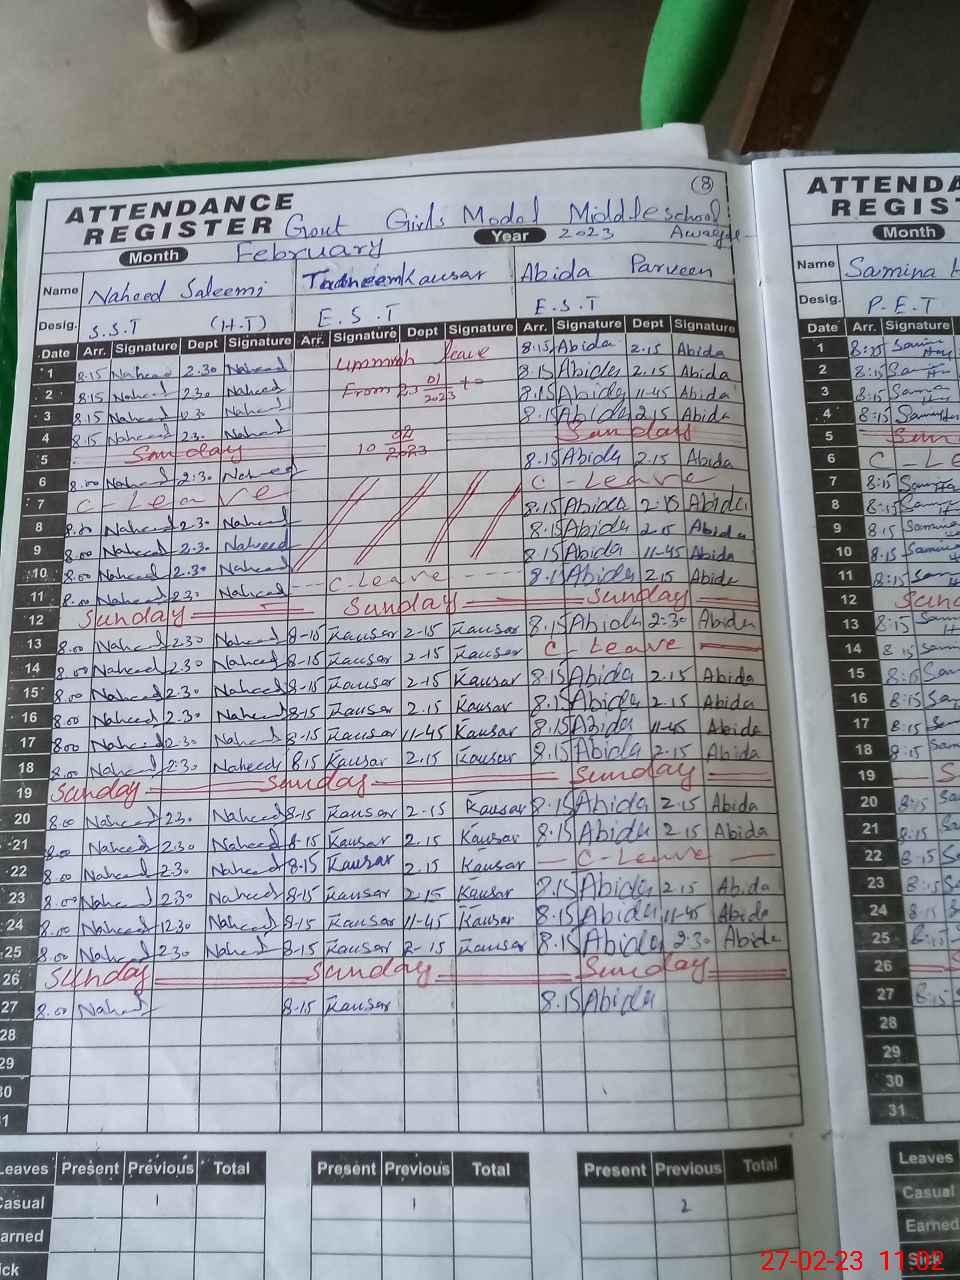 (8)
ATTENDANCE
REGISTER Govt Girls Model Middle school
Month February Year 2023
Name Naheed Saleemi Tadneem Kausar Abida Parveen
Desig. S.S.T (H.T) E.S.T E.S.T
Date Arr. Signature Dept Signature Arr. Signature Dept Signature Arr. Signature Dept Signature
1 8.15 Naheed 2.30 Naheed leave 8.15 Abida 2.15 Abida
2 8.15 Naheed 2.30 Naheed From 01 2023 to 8.15 Abida 2.15 Abida
3 8.15 Naheed 12.30 Naheed 8.15 Abida 11-45 Abida
4 8.15 Naheed 2.30 Naheed 10 02 2023 8.15 Abida 2.15 Abida
5 Sunday Sunday
6 8.00 Naheed 2.30 Naheed 8.15 Abida 2.15 Abida
7 C-Leave C-Leave
8 8.00 Naheed 2.30 Naheed 8.15 Abida 2.15 Abida
9 8.00 Naheed 2.30 Naheed 8.15 Abida 2.15 Abida
10 8.00 Naheed 2.30 Naheed 8.15 Abida 11-45 Abida
11 8.00 Naheed 2.30 Naheed C-Leave 8.15 Abida 2.15 Abida
12 Sunday Sunday Sunday
13 8.00 Naheed 2.30 Naheed 8-15 Kausar 2-15 Kausar 8.15 Abida 2.30 Abida
14 8.00 Naheed 2.30 Naheed 8-15 Kausar 2-15 Kausar C-Leave
15 8.00 Naheed 2.30 Naheed 8-15 Kausar 2-15 Kausar 8.15 Abida 2.15 Abida
16 8.00 Naheed 2.30 Naheed 8-15 Kausar 2.15 Kausar 8.15 Abida 2.15 Abida
17 8.00 Naheed 12.30 Naheed 8-15 Kausar 11-45 Kausar 8.15 Abida 11-45 Abida
18 8.00 Naheed 2.30 Naheed 8.15 Kausar 2.15 Kausar 8.15 Abida 2.15 Abida
19 Sunday Sunday Sunday
20 8.00 Naheed 2.30 Naheed 8-15 Kausar 2-15 Kausar 8.15 Abida 2.15 Abida
21 8.00 Naheed 2.30 Naheed 8-15 Kausar 2.15 Kausar 8.15 Abida 2.15 Abida
22 8.00 Naheed 2.30 Naheed 8-15 Kausar 2.15 Kausar C-Leave
23 8.00 Naheed 2.30 Naheed 8-15 Kausar 2-15 Kausar 8.15 Abida 2.15 Abida
24 8.00 Naheed 12.30 Naheed 8-15 Kausar 11-45 Kausar 8.15 Abida 11-45 Abida
25 8.00 Naheed 2.30 Naheed 8-15 Kausar 2-15 Kausar 8.15 Abida 2.30 Abida
26 Sunday Sunday Sunday
27 8.00 Naheed 8-15 Kausar 8.15 Abida
28
29
30
31
Leaves Present Previous Total Present Previous Total Present Previous Total
Casual 1 1 2
Earned
Sick
ATTENDA
REGIST
Month
Name Samina
Desig. P.E.T
Date Arr. Signature
1 8:15
2 8:15
3 8:15
4 8:15
5 Sun
6 C-Le
7 8:15
8 8:15
9 8.15
10 8.15
11 8:15
12 Sund
13 8:15
14 8.15
15 8:15
16 8:15
17 8:15
18 8:15
19 S
20 8:15
21 8:15
22 8:15
23 8:15
24 8:15
25 8:15
26 S
27 8:15
28
29
30
31
Leaves
Casual
Earned
Sick
27-02-23 11:02